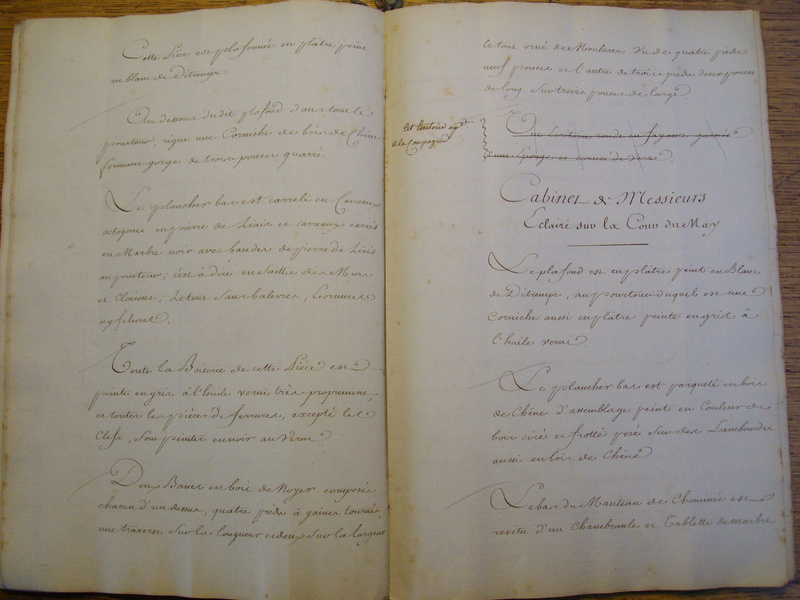 Cette Piéce est plafonnée en plâtre peint
en blanc de détrempe.
Au dessous dudit plafond dans tout le
pourtour, régne une Corniche de bois de Chêne
formant gorge de trois pouces quarré.
Le plancher bas est carrelé en Carreaux
octogones en pierre de Liais et carreaux carrés
en Marbre noir avec bandes de pierre de Liais
au pourtour; c'est à dire en Saillie des Murs
et Cloisons; Le tout Sans balevres, Ecornures
ny felures.
Toute la Boiserie de cette Piéce est
peinte en gris à l'huile verni très proprement,
et toutes les piéces de ferrures, excepté les
Clefs, sont peintes en noir au Verni
Deux Bancs en bois de Noyer composés
chacun d'un dessus, quatre pieds à gaines tournés,
une traverse Sur la longueur et deux Sur la largeur
le tout orné de Moulures. Un de quatre pieds
neuf pouces et l'autre de trois pieds deux pouces
de long Sur treize pouces de large
Cet Ecritoire
à la Compagnie
Une Ecritoire ronde en fayance garnie
d'une Eponge et cornet de verre.
Cabinet de Messieurs
Eclairé sur la Cour du May
Le plafond est en plâtre peint en Blanc
de Détrempe, au pourtour duquel est une
Corniche aussi en plâtre peinte en gris à
l'huile verni
Le plancher bas est parqueté en bois
de Chêne d'assemblage peint en Couleur de
bois cirés et frotté posé Sur des Lambourdes
aussi en bois de Chêne
Le bas du Manteau de Cheminée est
revetu d'un Chambranle et Tablette de marbre